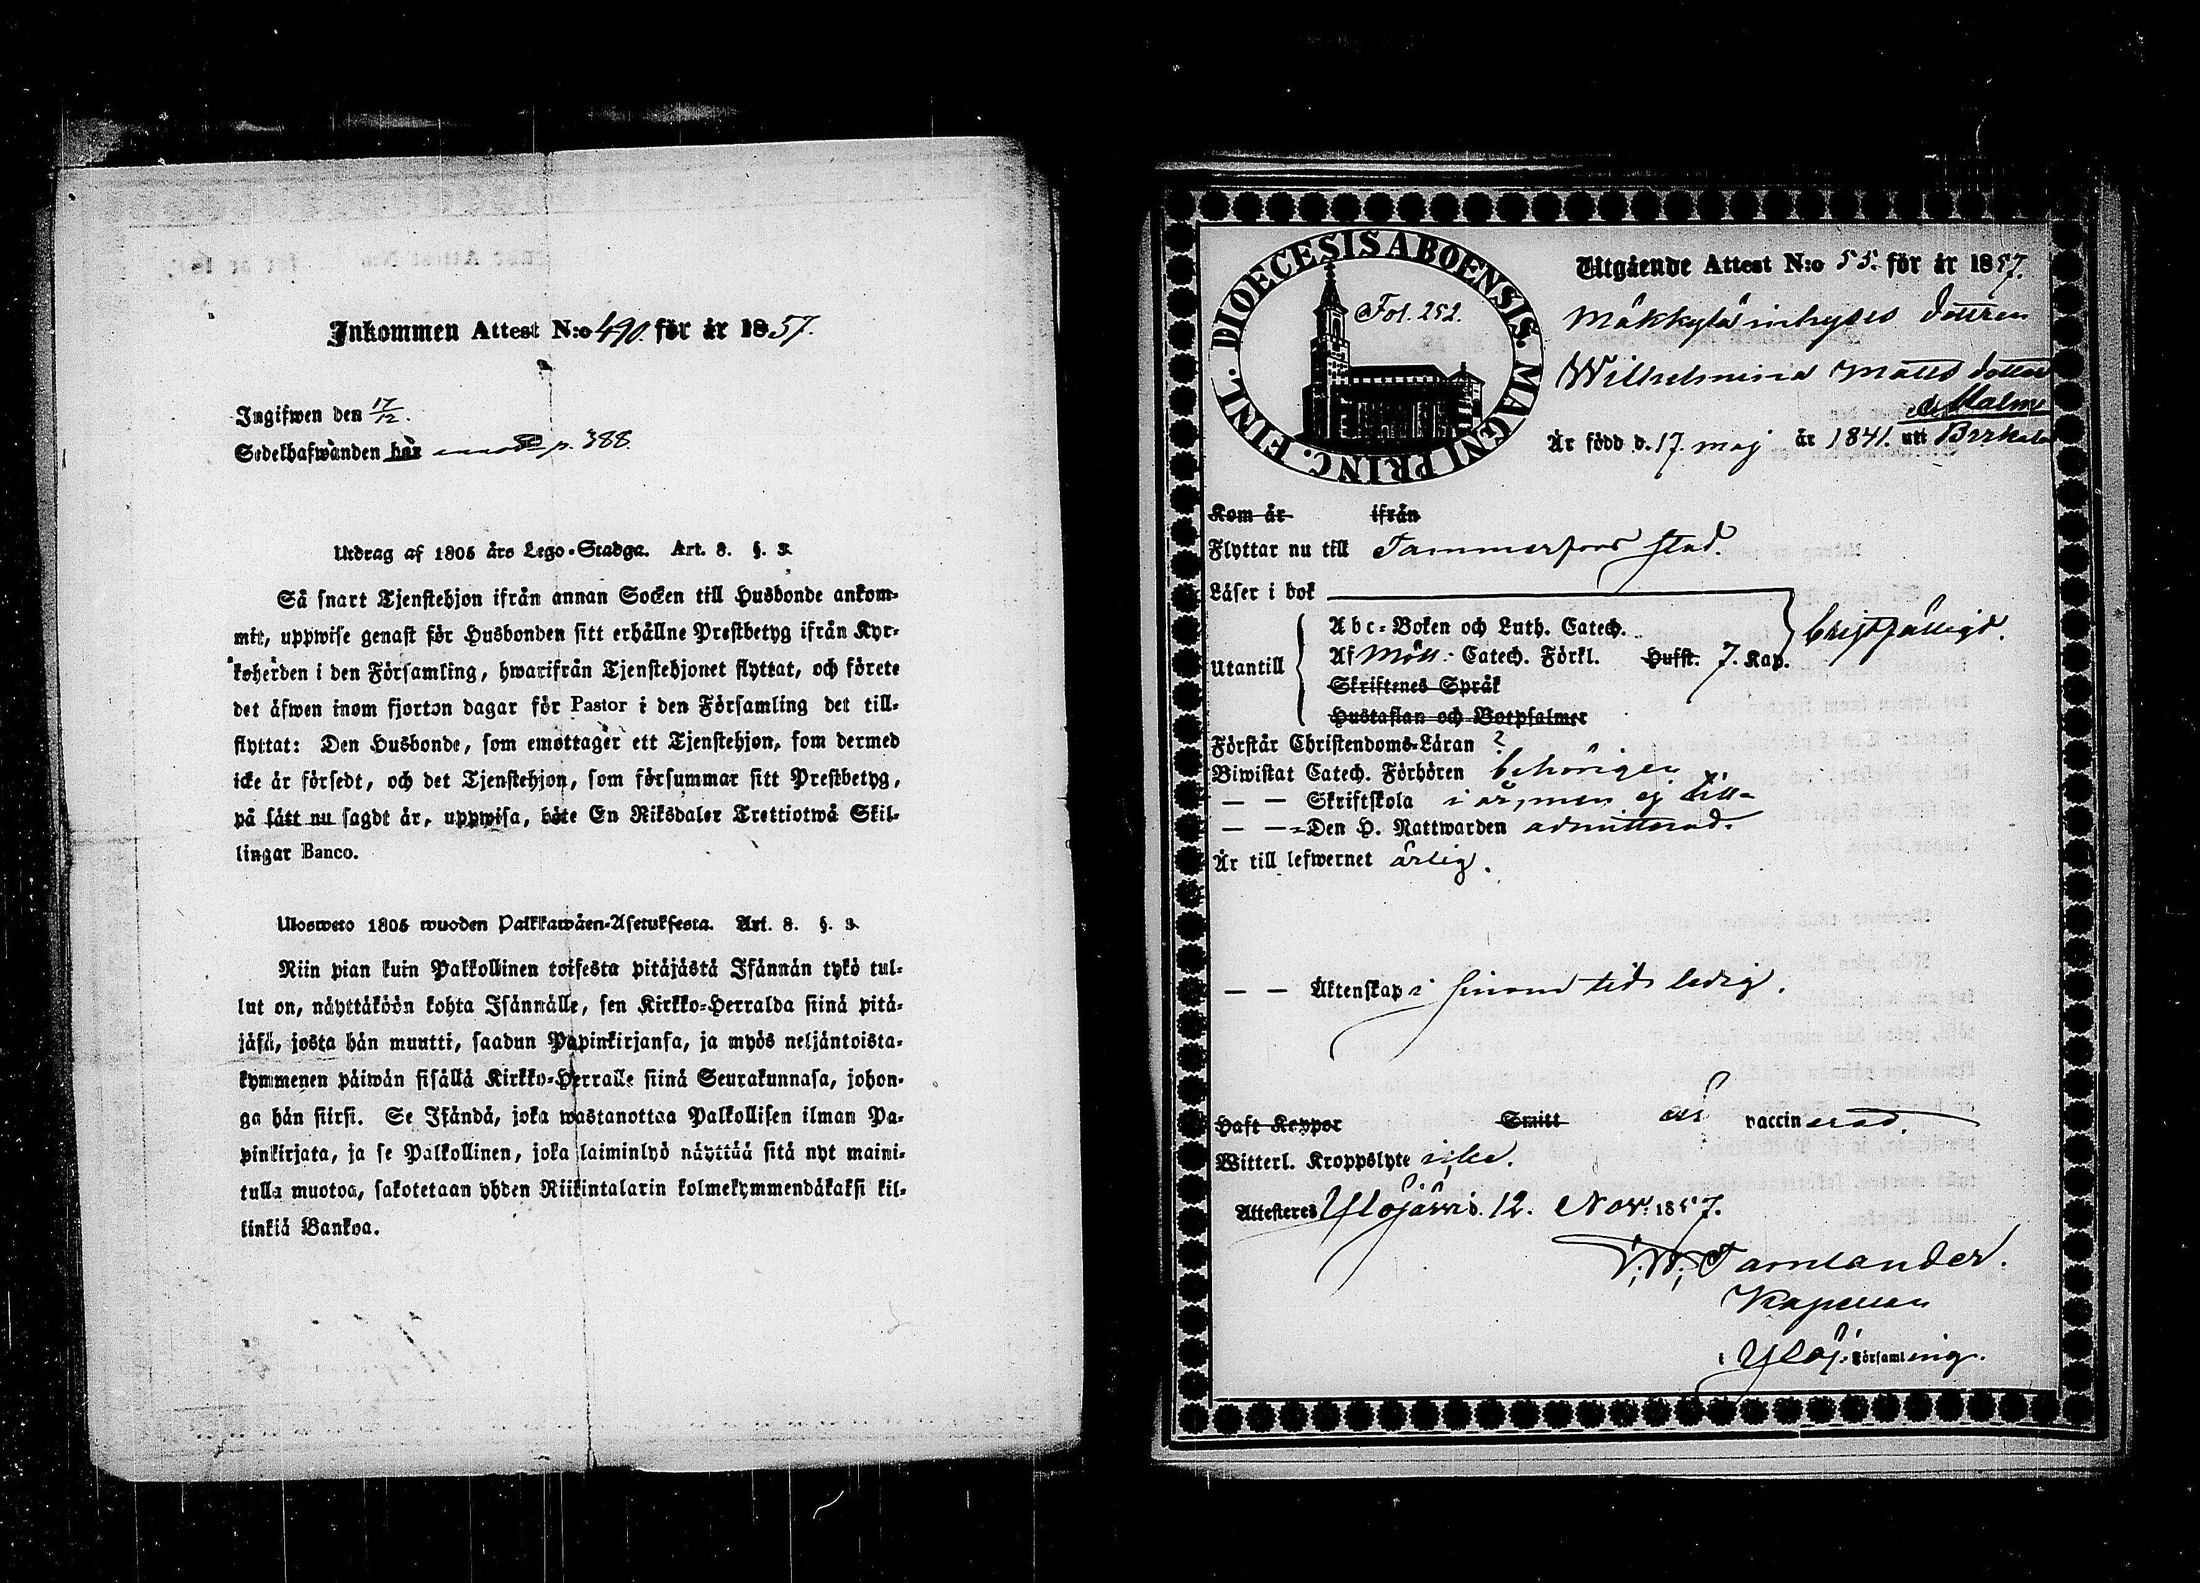 Inkommen Attest N:o 490. för år 1857.
Ingifwen den 17/12.
Sedelhafwanden här p. 388.
Utdrag af 1805 års Lego-Stadga. Art. 8. §. 3.
Så snart Tjenstehjon ifrån annan Socken till Husbonde ankom-
mit, uppwise genast för Husbonden sitt erhållne Prestbetyg ifrån Kyr-
koherden i den Församling, hwarifrån Tjenstehjonet flyttat, och förete
det äfwen inom fjorton dagar för Pastor i den Församling det till-
flyttat: Den Husbonde, som emottager ett Tjenstehjon, som dermed
icke är försedt, och det Tjenstehjon, som försummar sitt Prestbetyg,
på sätt nu sagdt är, uppwisa, böte En Riksdaler Trettiotwå Skil-
lingar Banco.
Ulosweto 1805 wuoden Palkkawäen-Asetuksesta. Art. 8. §. 3.
Niin pian kuin Palkollinen toisesta pitäjästä Isännän tykö tul-
lut on, näyttäköön kohta Isännälle, sen Kirkko-Herralda siinä pitä-
jäsä, josta hän muutti, saadun Papinkirjansa, ja myös neljäntoista-
kymmenen päiwän sisällä Kirkko-Herralle siinä Seurakunnasa, johon-
ga hän siirsi. Se Isändä, joka wastanottaa Palkollisen ilman Pa-
pinkirjata, ja se Palkollinen, joka laiminlyö näyttää sitä nyt maini-
tulla muotoa, sakotetaan yhden Riikintalarin kolmekymmendäkaksi kil-
linkiä Bankoa.
DIOECESIS ABOENSIS. MAGNI PRINC. FINL.
Fol. 252.
Utgående Attest N:o 55. för år 1857.
Mäkkylä inhyses dottren
Wilhelmina Matts dotter
Malm
Är född d. 17. maj år 1841. uti Birkala
Kom år ifrån
Flyttar nu till Tammerfors stad.
Läser i bok
Abc-Boken och Luth. Catech.
Utantill Af Möll: Catech. Förkl. Husst. 7. Kap. bristfälligt.
Skriftenes Språk
Hustaflan och Botpsalmer
Förstår Christendoms-Läran ?
Biwistat Catech. Förhören behörigen
— — Skriftskola i år, men ej till-
— — Den H. Nattwarden admitterad.
Är till lefwernet ärlig.
— — Äktenskap i sinom tid ledig.
Haft Koppor Smitt vaccinerad.
Witterl. Kroppslyte icke.
Attesteres Ylöjärwi d. 12. Nov. 1857.
Tamlander.
Kapellan
i Ylöj. Församling.